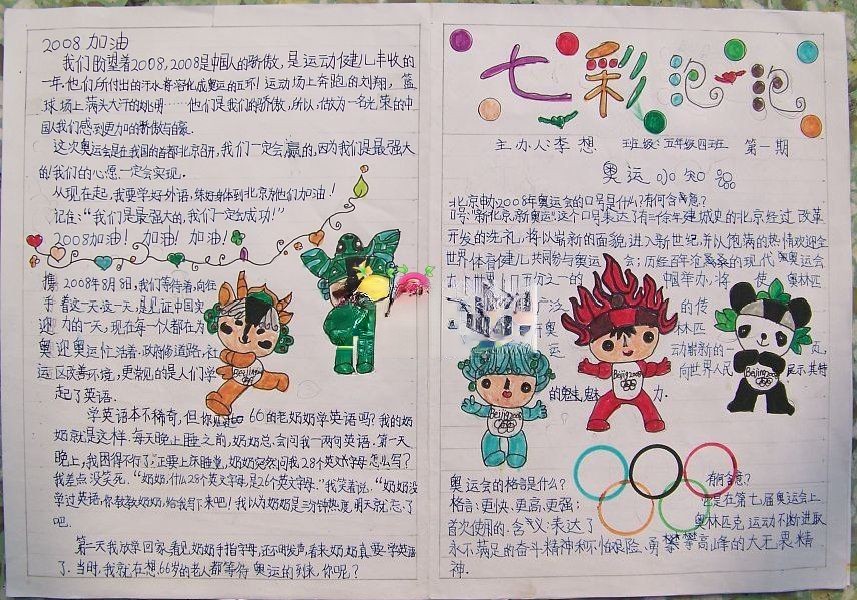 2008加油
我们盼望着2008,2008是中国人的骄傲,是运动健儿丰收的
一年,他们所付出的汗水将溶化成奥运的五环!运动场上奔跑的刘翔,篮
球场上满头大汗的姚明……他们是我们的骄傲,所以,做为一名光荣的中
国人我们感到更加的骄傲与自豪.
这次奥运会是在我国的首都北京召开,我们一定会赢的,因为我们是最强大
的!我们的心愿一定会实现.
从现在起,我要学好外语,练好身体到北京为他们加油!
记住:“我们是最强大的,我们一定会成功!”
2008加油!加油!加油!
2008年8月8日,我们等待着,向往
着这一天,这一天,是见证中国实
力的一天,现在每一个都在为
迎奥运忙活着.政府修道路,社
区改善环境,更常见的是人们学
起了英语.
携
手
迎
奥
运
学英语本不稀奇,但你 66的老奶奶学英语吗?我的奶
奶就是这样.每天晚上睡之前,奶奶总会问我一两句英语.第一天
晚上,我困得不行了,正要上床睡觉,奶奶突然问我28个英文字母怎么写?
我差点没笑死.“奶奶,什么28个英文字母,是26个英文字母.”我笑着说.“奶奶没
学过英语,你教教奶奶,给我写下来吧!我以为奶奶是三分钟热度,明天就忘了
吧.
第二天我放学回家,看见奶奶手指字母,还不时发声,看来奶奶真要学英语
了.当时,我就在想,66岁的老人都等待奥运的到来,你呢?
七彩泡泡
主办人:李想 班级:五年级四班 第一期
奥运小知识
北京申办2008年奥运会的口号是什么?有何含意?
口号:“新北京,新奥运”这个口号表达了有三千余年建城史的北京经过改革
开放的洗礼,将以崭新的面貌进入新世纪,并以饱满的热情欢迎全
世界体育健儿共同参与奥运会;历经百年沧桑的现代奥运会
百万分之一的 中国举办,将 使 奥林匹
泛 的传
新奥 林匹
运 动崭新的一 页,
向世界人民 展示其特
的魅 魅 力.
Beijing2008
Beijing2008
Beijing2008
Beijing2008
奥运会的格言是什么? 有何含意?
格言:更快、更高、更强; 它是在第七届奥运会上
首次使用的.含义:表达了 奥林匹克,运动不断进取
永不满足的奋斗精神和不怕艰险、勇攀攀高峰的大无畏精
神.